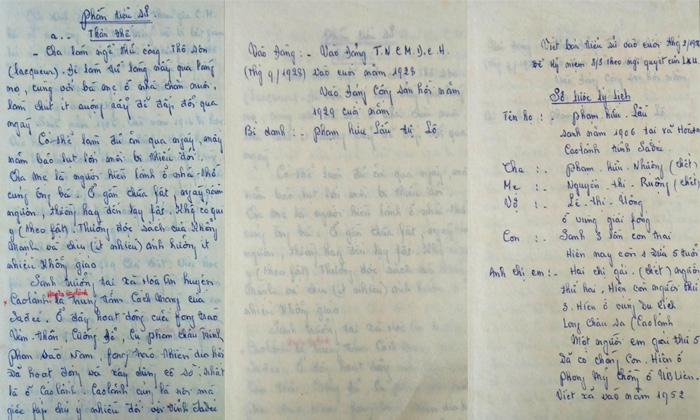 Phần tiểu sử
a.- Thân thế
- Cha làm nghề thủ công thợ sơn
(laqueur). Đi làm từ làng nầy qua làng
nọ, cùng với bà mẹ ở nhà chăn nuôi.
làm chút ít ruộng rẫy để đấp đổi qua
ngày
Có thể làm đủ ăn qua ngày, mấy
năm bảo lụt lớn mới bị thiếu đói.
Cha mẹ là người hiền lành ở nhà thờ
cúng ông bà. Ở gần chùa phật, ngày rằm
nguơn, thường hay đến lạy phật. Không có qui
y (theo phật). Thường đọc sách của Khổng
Thánh và chịu (ít nhiều) ảnh hưởng ít
nhiều Khổng giáo
Sanh trưởng tại xã Hoà An huyện
Caolãnh là trung tâm Cách mạng của
Sadec. Ở đây hoạt động của fong trào
Văn Thân, Cường Để, Cụ Phan châu Trinh,
Phan Bảo Nam, fong trào Thiên địa hội
Đã hoạt động và xây dựng cơ sở. Nhất
là ở Caolãnh. Caolãnh cũng là nơi mà
giặc Pháp chú ý nhiều đối với tỉnh Sadec
Vào Đảng:- Vào Đảng T.N.C.M.D.C.H.
(thg 9/1928) vào cuối năm 1928
Vào Đảng Cộng sản hồi năm
1929 cuối năm
Bí danh:- Phạm hữu Lầu tự Lô
Viết bản tiểu sử vào cuối thg 2/19
để kỷ niệm 3/3 theo nghị quyết của
Sơ lược lý lịch
Tên họ:- Phạm hữu Lầu
Sanh năm 1906 tại xã Hoà
Caolãnh tỉnh Sadec
Cha:- Phạm-Hữu-Nhường (chết)
Mẹ:- Nguyễn-thị-Ruông (chết)
Vợ:- Lê-Thị-Uông
ở vùng giải fóng
Con:- Sanh 3 lần con trai
Hiện nay còn 1 đứa 5 tuổi
Anh chị em:- Hai chị gái. (chết) người
thứ hai. Hiện còn người thứ
3. Hiện ở vùng Du kích
Long Châu Sa (Caolãnh
Một người em gái thứ 5
Đã có chồng con. Hiện ở
Phong Mỹ chồng ở UB Liên-
Việt xã vào năm 1952